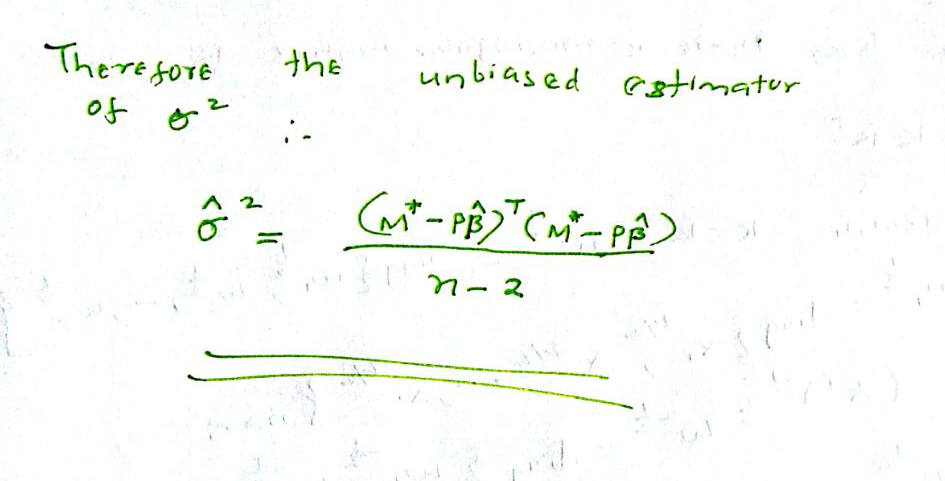 Therefore the unbiased estimator
of σ²
∴
σ̂² = (M* - Pβ̂)ᵀ (M* - Pβ̂)
n - 2